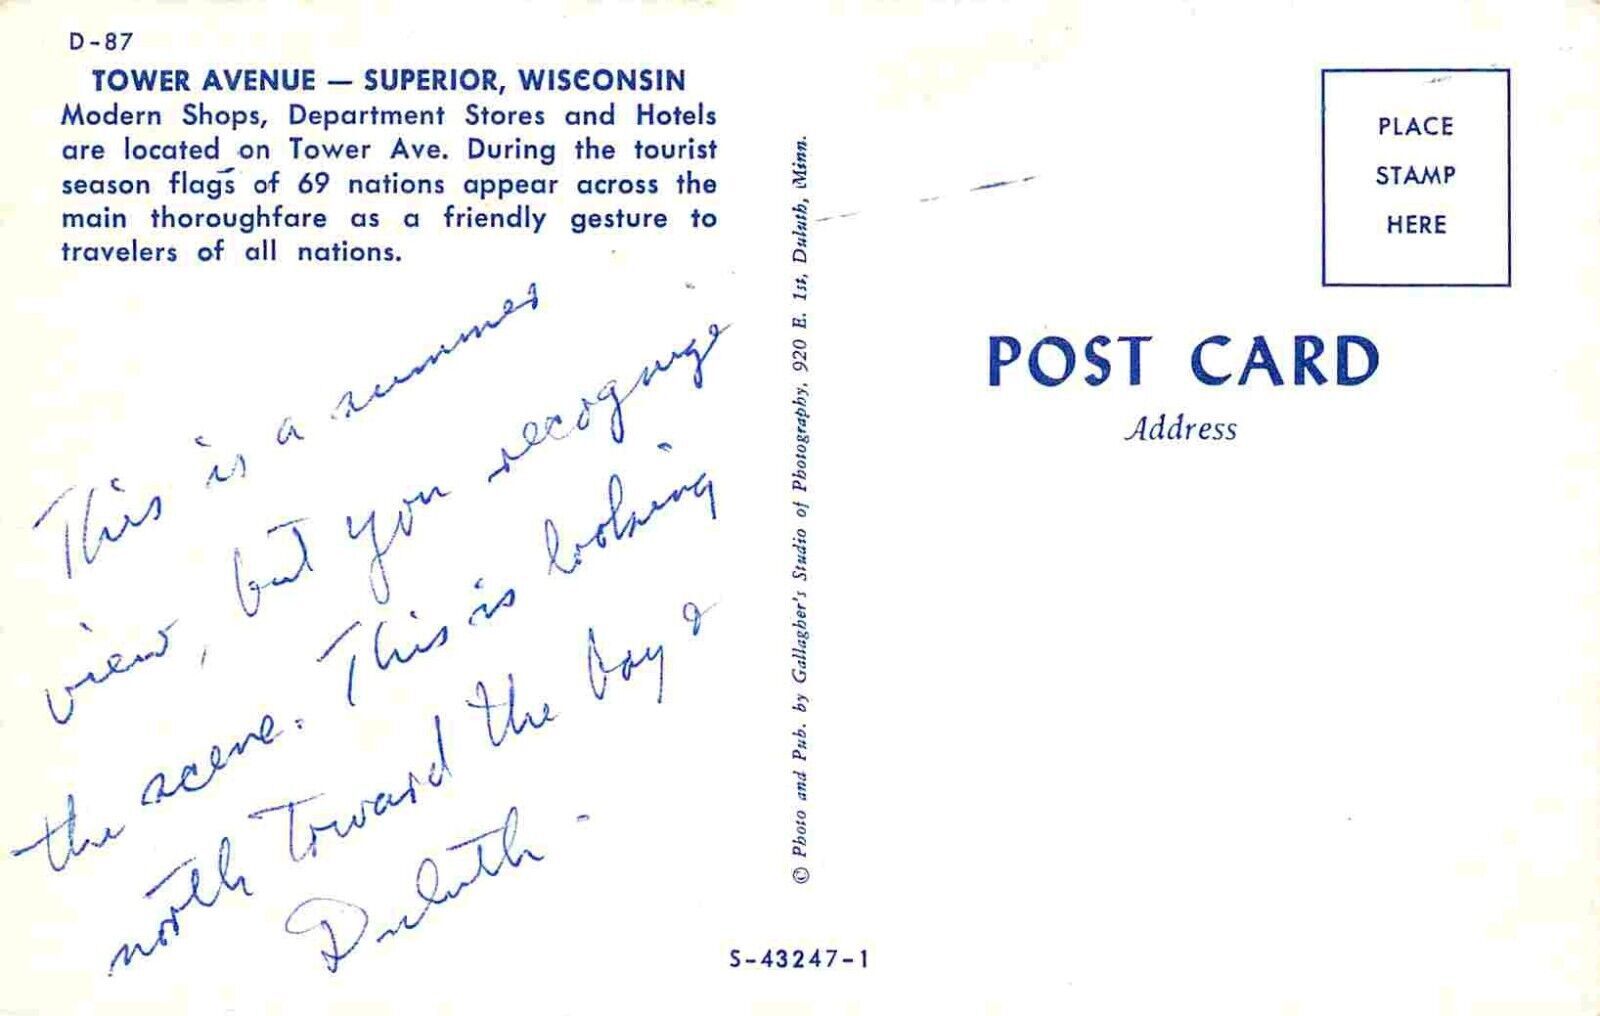 D-87
TOWER AVENUE — SUPERIOR, WISCONSIN
Modern Shops, Department Stores and Hotels
are located on Tower Ave. During the tourist
season flags of 69 nations appear across the
main thoroughfare as a friendly gesture to
travelers of all nations.
This is a summer
view, but you recognize
the scene. This is looking
north toward the bay &
Duluth -
© Photo and Pub. by Gallagher's Studio of Photography, 920 E. 1st, Duluth, Minn.
S-43247-1
PLACE
STAMP
HERE
POST CARD
Address